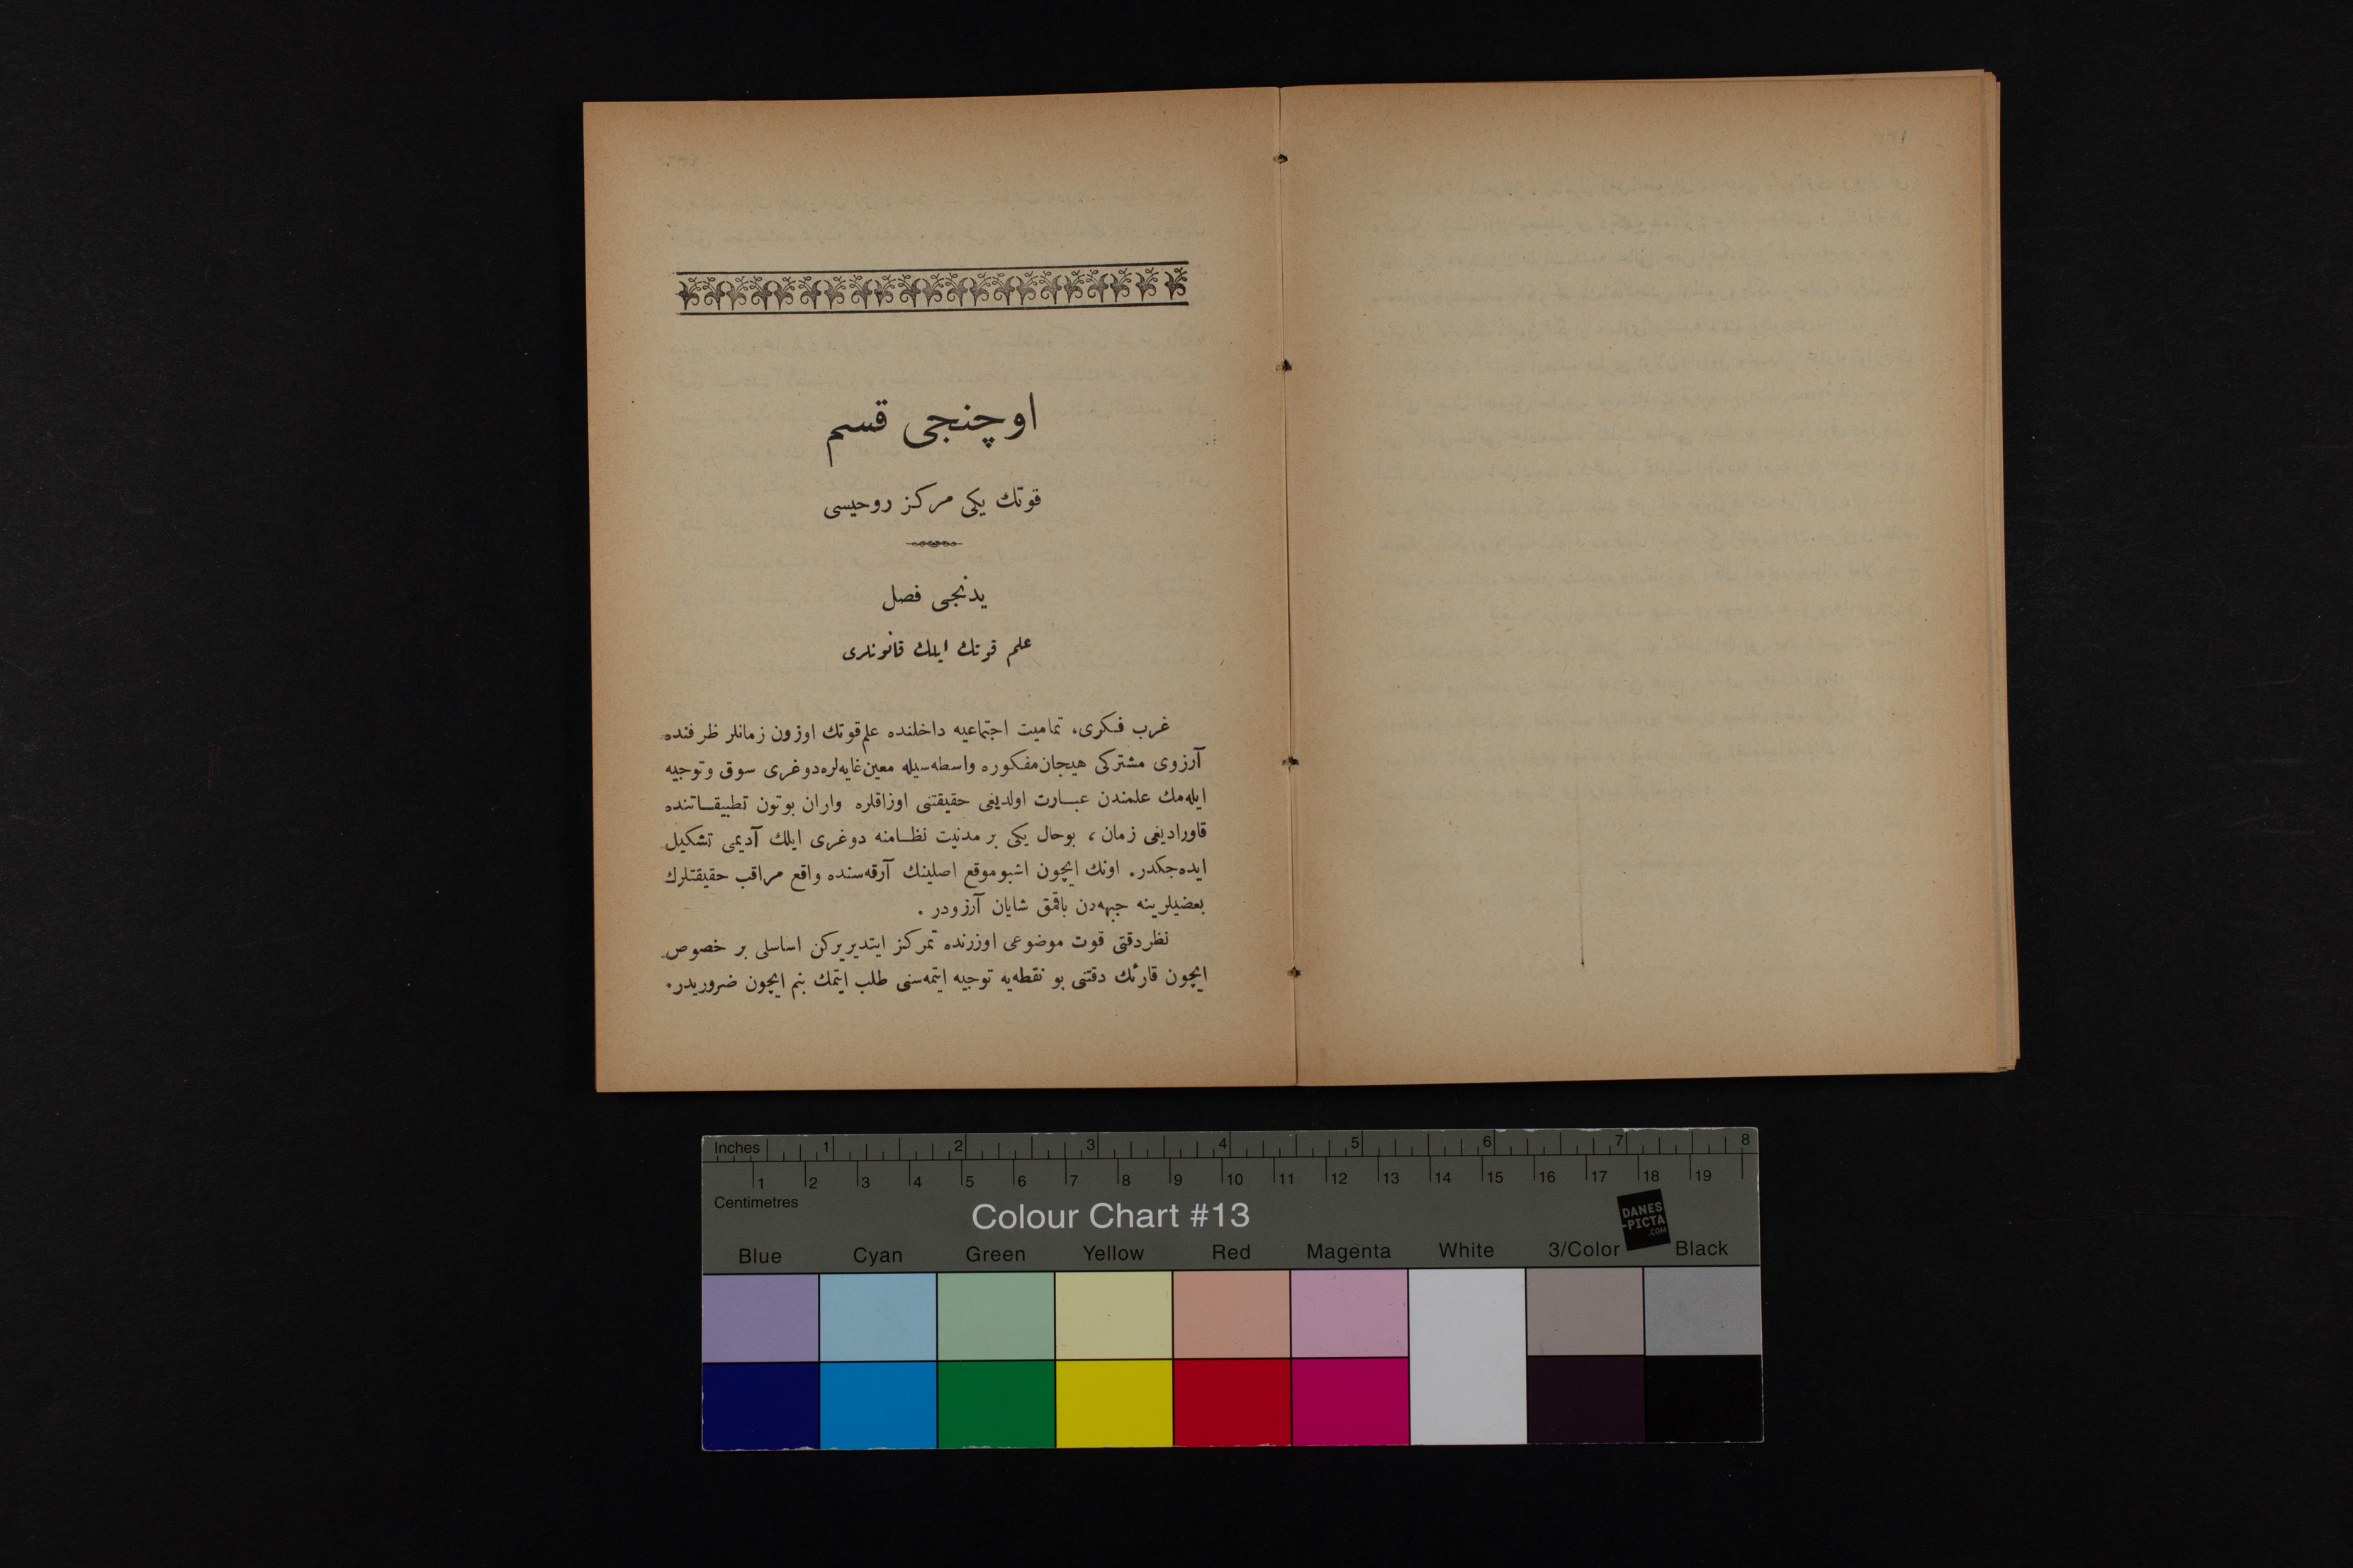 اوچنجی قسم
قوتك يكی مركز روحيسی
يدنجی فصل
علم قوتك ايلك قانونلری
غرب فكری، تماميت اجتماعيه داخلنده علم قوتك اوزون زمانلر ظرفنده
آرزوی مشتركی هيجان مفكوره واسطه‌سيله معين غايه‌لره دوغری سوق وتوجيه
ايله‌مك علمندن عبارت اولديغی حقيقتنی اوزاقلره واران بوتون تطبيقاتنده
قاوراديغی زمان، بوحال يكی بر مدنيت نظامنه دوغری ايلك آديمی تشكيل
ايده‌جكدر. اونك ايچون اشبو موقع اصلينك آرقه‌سنده واقع مراقب حقيقتلرك
بعضيلرينه جبهه‌دن باقمق شايان آرزودر.
نظر دقتی قوت موضوعی اوزرنده تمركز ايتديريركن اساسلی بر خصوص
ايچون قارئك دقتنی بو نقطه‌يه توجيه ايتمه‌سنی طلب ايتمك بنم ايچون ضروريدر.
Inches 1 2 3 4 5 6 7 8
1 2 3 4 5 6 7 8 9 10 11 12 13 14 15 16 17 18 19
Centimetres
Colour Chart #13
DANES
-PICTA
.COM
Blue Cyan Green Yellow Red Magenta White 3/Color Black